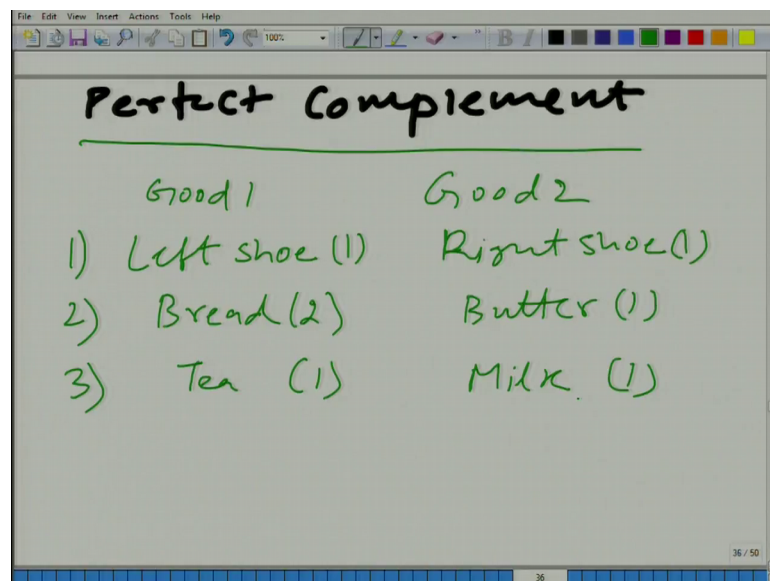 File Edit View Insert Actions Tools Help
100%
B I
Perfect Complement
Good 1 Good 2
1) Left shoe (1) Right shoe (1)
2) Bread (2) Butter (1)
3) Tea (1) Milk (1)
36 / 50
36